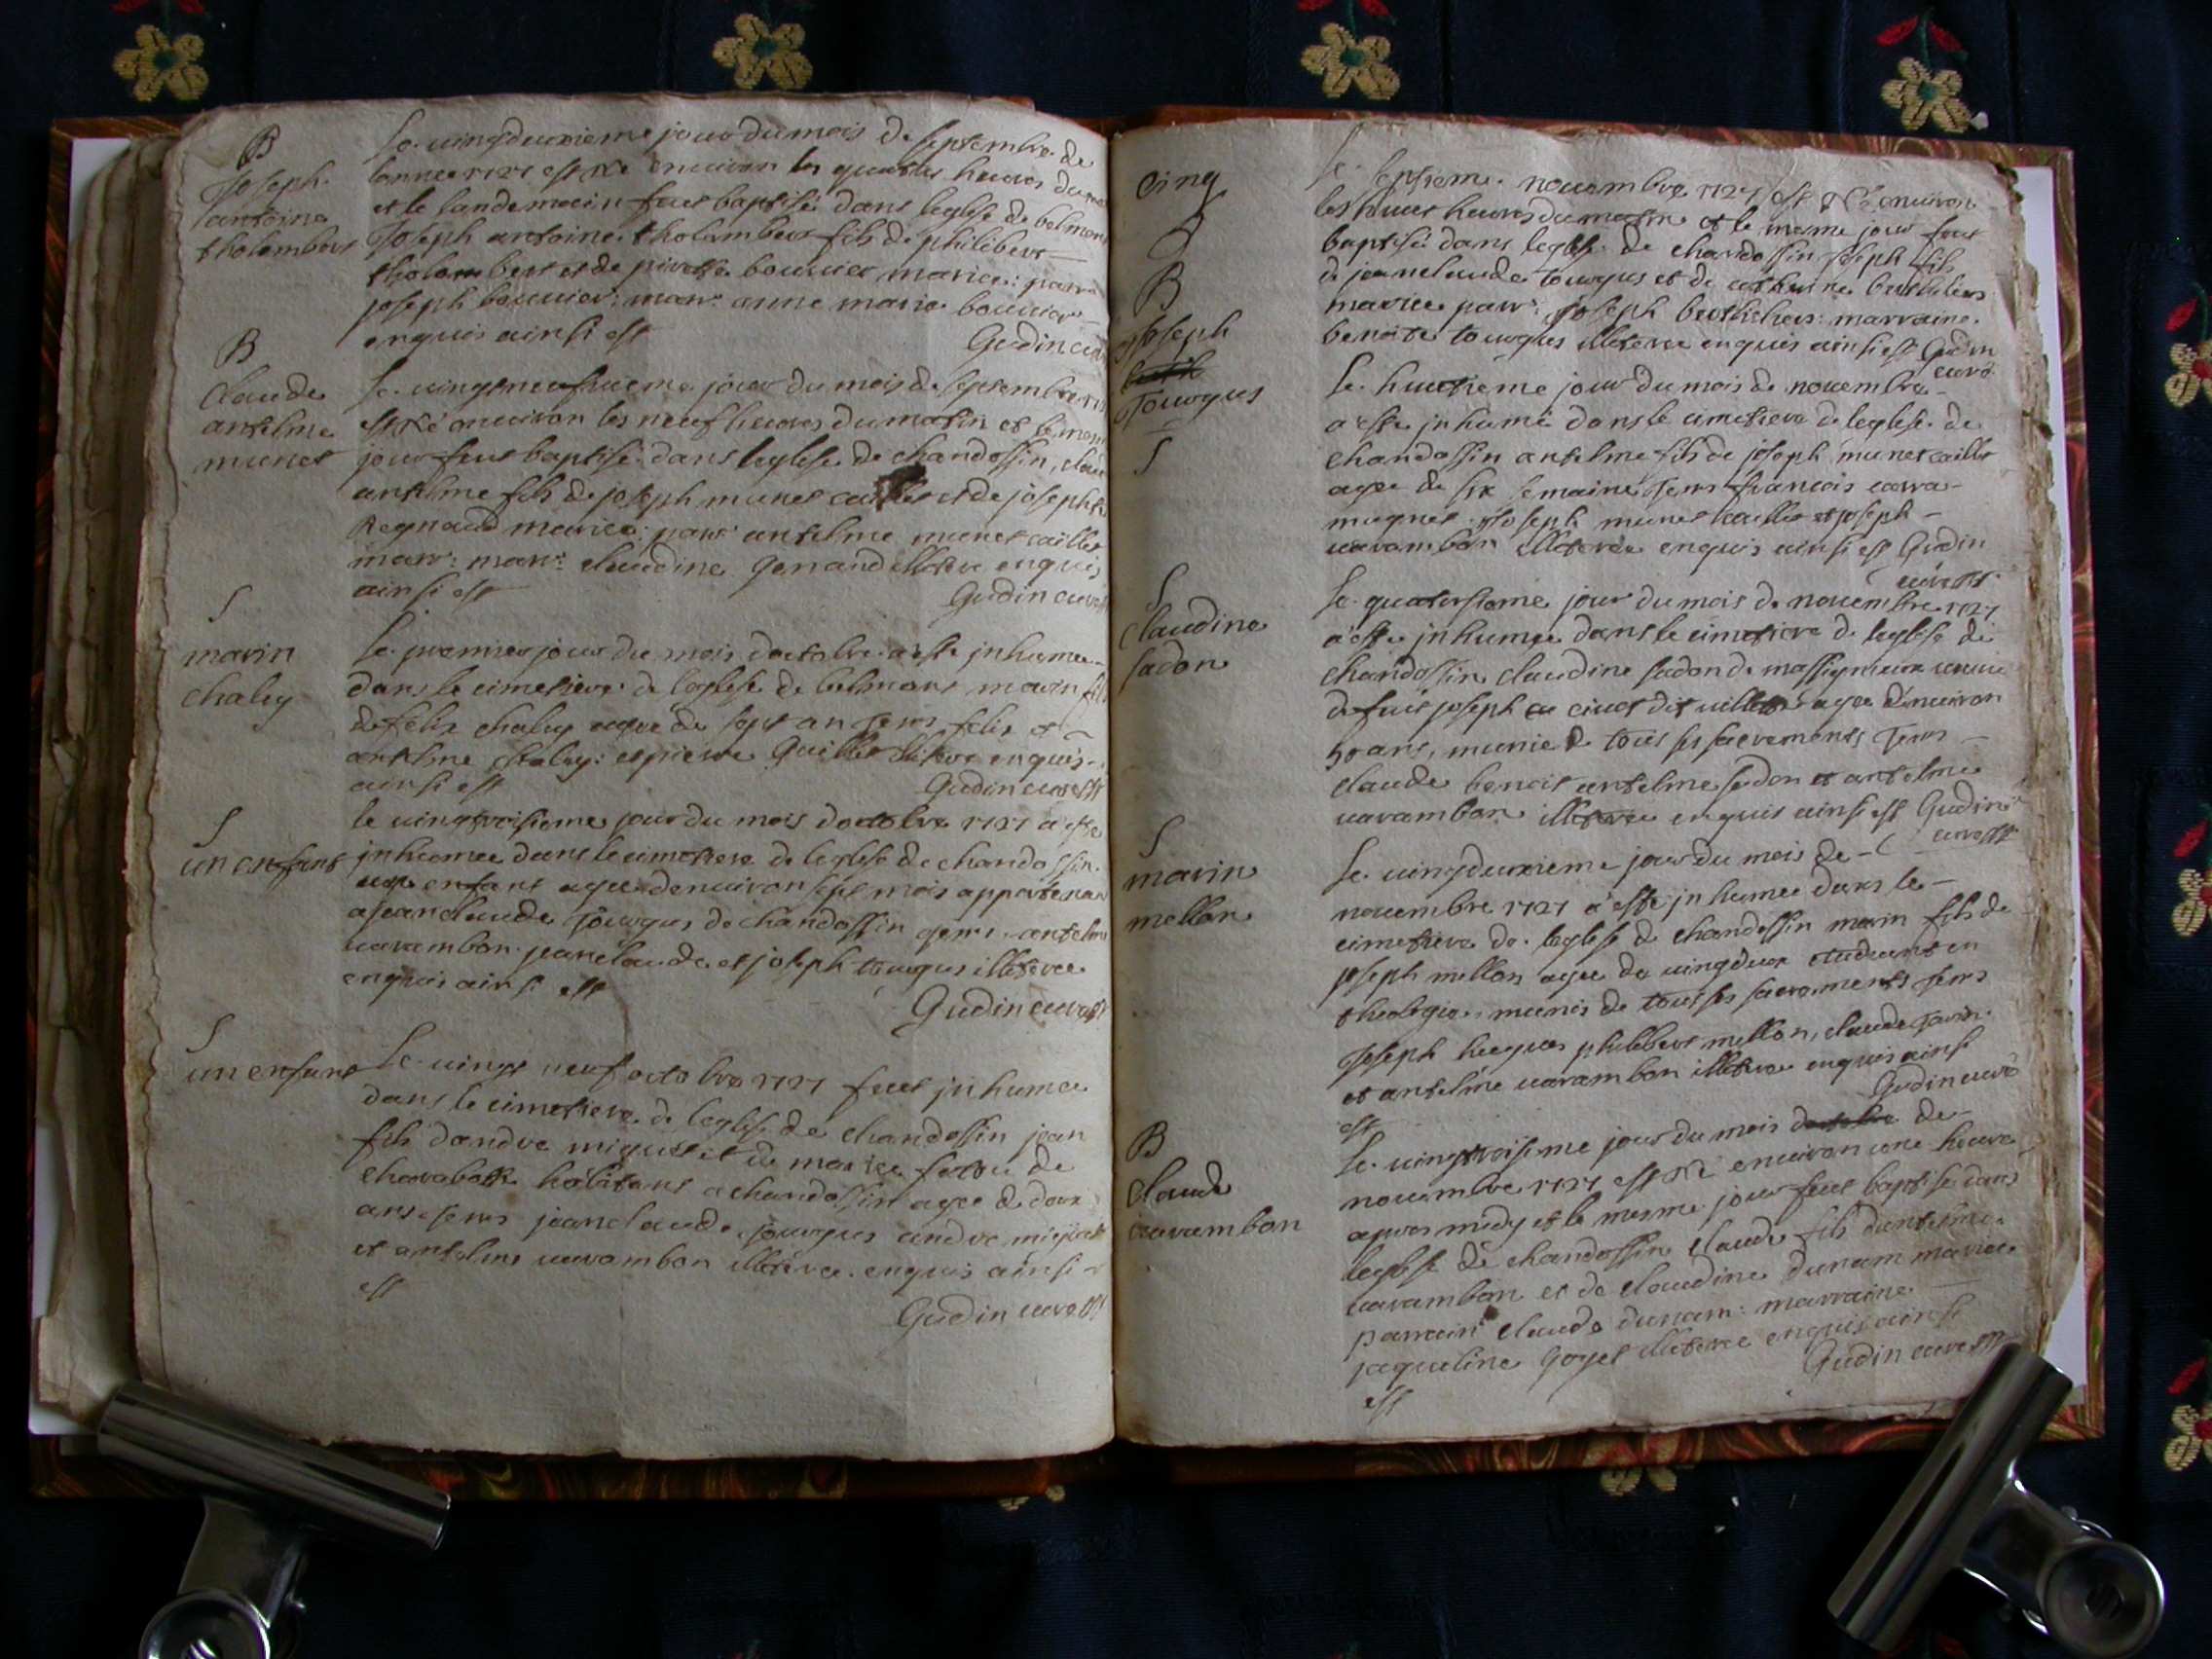 B
Joseph
antoine
tholombert
Le vingdeuxieme jour du mois de septembre de
lannee 1727 est Né enuiron les quattres heures du
et le landemain fut baptisé dans leglise de belmont
Joseph antoine tholombert fils de philibert
tholombert et de pierotte bouuier mariee: parr
joseph bouuier: marr: anne marie bouuier
enquis ainsi est
Gudin curé
B
Claude
antelme
munet
Le vingtneufuieme jour du mois de septembre
est Né enuiron les neuf heures du matin et le mesme
jour feut baptisé dans leglise de chandossin, claude
antelme fils de joseph munet caillet et de josephte
Regnaud mariee: parr antelme munet caillet
marr: marr: claudine Genand illeteree enquis
ainsi est
Gudin curé
S
marin
chaley
Le premier jour du mois doctobre a este jnhumee
dans le cimetiere de leglise de belmont marin fils
de felix chaley agee de sept an Tems felix et
antelme chaley: et pierre Guillet illitere enquis
ainsi est
Gudin curé
S
un enfant
le vingtroisieme jour du mois doctobre 1727 a este
jnhumee dans le cimetiere de leglise de chandossin
enfant agee denuiron sept mois appartenan
a jeanclaude Tourgus de chandossin Tems antelme
uarambon jeanclaude et joseph tourgus illeteree
enquis ainsi est
Gudin curé
S
un enfant
Le vingt neuf octobre 1727 feut jnhumee
dans le cimetiere de leglise de chandossin jean
fils dandre miguet et de mariee
charabotte habitant a chandossin agee de deux
ans Tems jeanclaude Tourgus andre miguet
et antelme uarambon illeteree enquis ainsi
est
Gudin curé
cinq
B
Joseph
Tourgus
Le septieme nouembre 1727 est Né enuiron
les huict heures du matin et le mesme jour feut
baptisé dans leglise de chandossin joseph fils
de jeanclaude Tourgus et de catherine berthiliers
mariee parr: joseph berthiliers: marraine
benoite tourgus illeteree enquis ainsi est Gudin
curé
S
Le huictieme jour du mois de nouembre
a este jnhumé dans le cimetiere de leglise de
chandossin antelme fils de joseph munet caillet
agee de six semaine Tems francois
Joseph munet caillet et joseph
uarambon illeteree enquis ainsi est Gudin
curé
S
Claudine
sadon
Le quatorsieme jour du mois de nouembre 1727
a este jnhumee dans le cimetiere de leglise de
chandossin claudine sadon de massignieux veuue
de fut joseph cuinet dit agee denuiron
50 ans, munie de tous ses sacrements Tems
claude benoit antelme sadon et antelme
uarambon illeteree enquis ainsi est Gudin
curé
S
marin
mellon
Le vingdeuxieme jour du mois de
nouembre 1727 a este jnhumee dans le
cimetiere de leglise de chandossin marin fils de
joseph mellon agee de vingdeux etudiant en
theologie, munis de tous ses sacrements Tems
Joseph philibert mellon, claude
et antelme uarambon illeteree enquis ainsi
est
Gudin curé
B
Claude
uarambon
Le vingtroisieme jour du mois doctobre de
nouembre 1727 est Né enuiron une heure
apres midy et le mesme jour feut baptisé dans
leglise de chandossin claude fils dantelme
uarambon et de claudine dunam mariee
parrain claude dunam: marraine
jaqueline Goyet illeteree enquis ainsi
est
Gudin curé